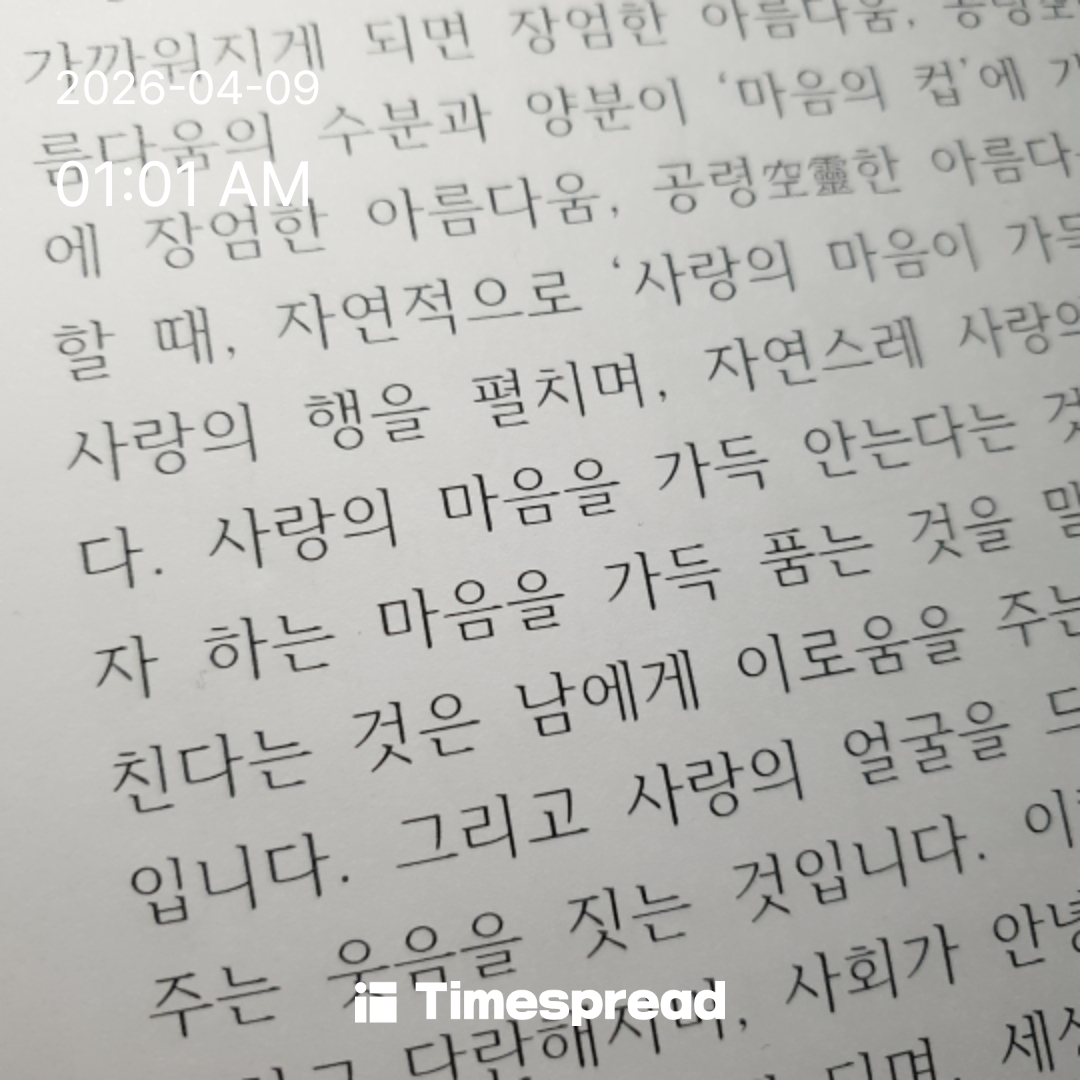 가까워지게 되면 장엄한 아름다움,
2026-04-09
름다움의 수분과 양분이 ‘마음의 컵’에
01:01 AM
에 장엄한 아름다움, 공령空靈한 아름다
할 때, 자연적으로 ‘사랑의 마음이
사랑의 행을 펼치며, 자연스레 사랑의
다. 사랑의 마음을 가득 안는다는
자 하는 마음을 가득 품는 것을
친다는 것은 남에게 이로움을 주는
입니다. 그리고 사랑의 얼굴을
주는 웃음을 짓는 것입니다.
Timespread
사회가